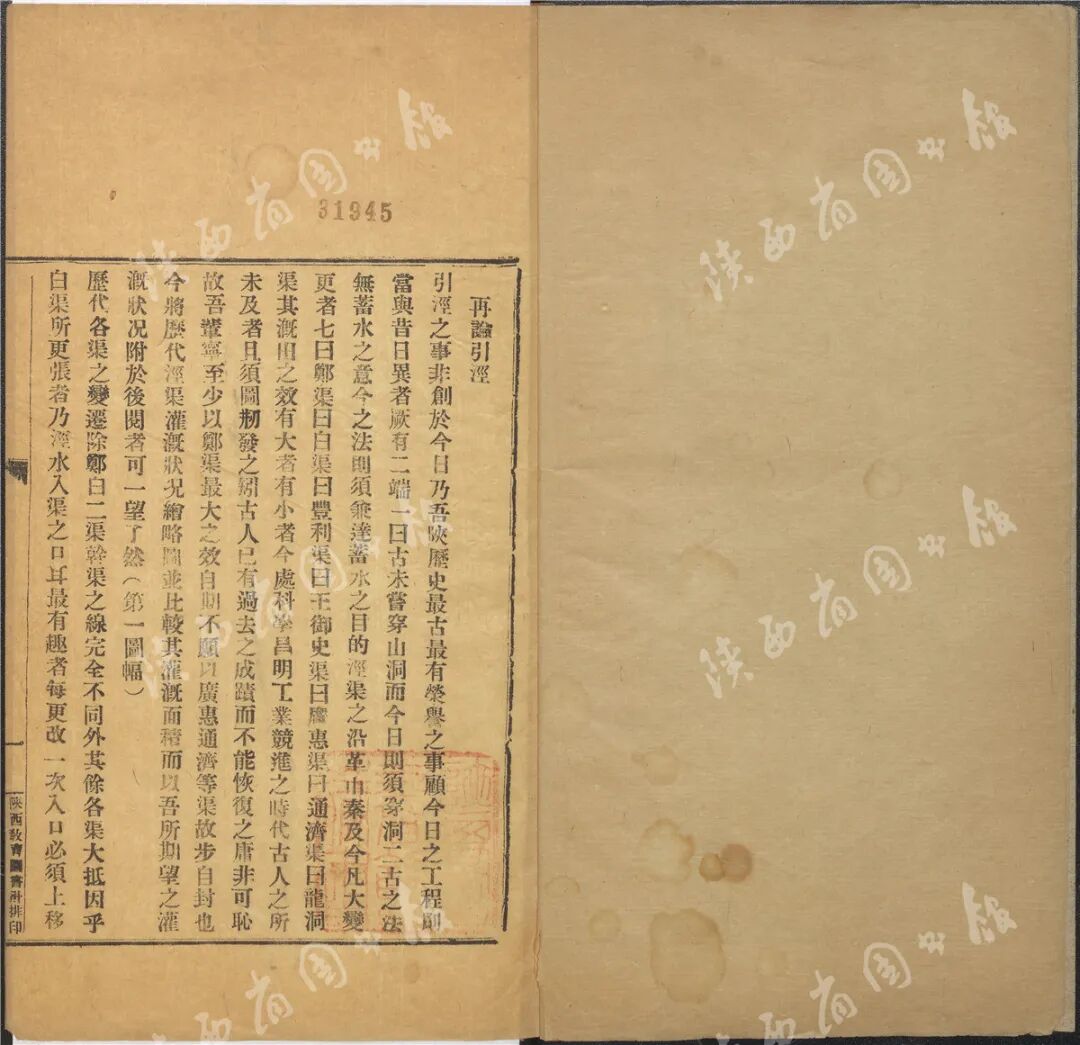 31945
再論引涇
引涇之事非創於今日乃吾陝歷史最古最有榮譽之事顧今日之工程則
當與昔日異者厥有二端一曰古未嘗穿山洞而今日則須穿洞二古之法
無蓄水之意今之法則須兼達蓄水之目的涇渠之沿革由秦及今凡大變
更者七曰鄭渠曰白渠曰豐利渠曰王御史渠曰廣惠渠曰通濟渠曰龍洞
渠其漑田之效有大者有小者今處科學昌明工業競進之時代古人之所
未及者且須圖剏發之矧古人已有過去之成蹟而不能恢復之庸非可恥
故吾輩寧至少以鄭渠最大之效自期不願以廣惠通濟等渠故步自封也
今將歷代涇渠灌漑狀况繪略圖並比較其灌漑面積而以吾所期望之灌
漑狀况附於後閱者可一望了然(第一圖幅)
歷代各渠之變遷除鄭白二渠幹渠之線完全不同外其餘各渠大抵因乎
白渠所更張者乃涇水入渠之口耳最有趣者每更改一次入口必須上移
一
陝西敎育圖書社排印
陝西省圖書館
陝西省圖書館
陝西省圖書館
陝西省圖書館